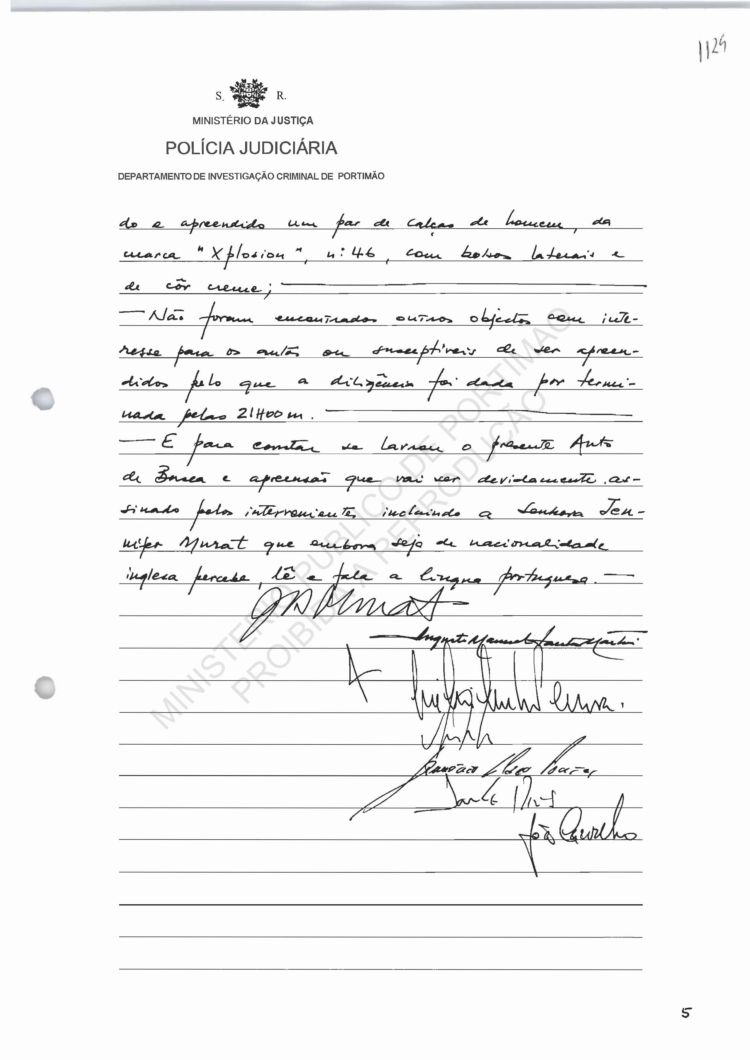 1129
S. R.
MINISTÉRIO DA JUSTIÇA
POLÍCIA JUDICIÁRIA
DEPARTAMENTO DE INVESTIGAÇÃO CRIMINAL DE PORTIMÃO
do e apreendido um par de calças de homem, da
marca "Xplosion", nº 46, com bolsos laterais e
de côr creme;
— Não foram encontrados outros objectos com inte-
resse para os autos ou susceptíveis de ser apreen-
didos pelo que a diligência foi dada por termi-
nada pelas 21H00m.
— E para constar se lavrou o presente Auto
de Busca e apreensão que vai ser devidamente as-
sinado pelos intervenientes incluindo a Senhora Jen-
nifer Murat que embora seja de nacionalidade
inglesa percebe, lê e fala a língua portuguesa. —
MINISTÉRIO PUBLICO DE PORTIMAO
PROIBIDA A REPRODUÇÃO
Murat
João Carvalho
5